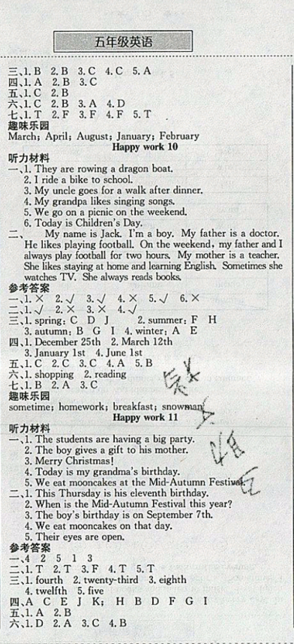 五年级英语
三、1. B 2. B 3. C 4. C 5. A
四、1. A 2. B 3. C
五、1. C 2. B
六、1. C 2. B 3. A 4. D
七、1. T 2. F 3. F 4. F 5. T
趣味乐园
March; April; August; January; February
Happy work 10
听力材料
一、1. They are rowing a dragon boat.
2. I ride a bike to school.
3. My uncle goes for a walk after dinner.
4. My grandpa likes singing songs.
5. We go on a picnic on the weekend.
6. Today is Children's Day.
二、 My name is Jack. I'm a boy. My father is a doctor.
He likes playing football. On the weekend, my father and I
always play football for two hours. My mother is a teacher.
She likes staying at home and learning English. Sometimes she
watches TV. She always reads books.
参考答案
一、1. × 2. √ 3. √ 4. × 5. √ 6. ×
二、1. √ 2. × 3. × 4. √
三、1. spring: C D J 2. summer: F H
3. autumn: B G I 4. winter: A E
四、1. December 25th 2. March 12th
3. January 1st 4. June 1st
五、1. C 2. C 3. C 4. A 5. B
六、1. shopping 2. reading
七、1. B 2. A 3. C
趣味乐园
sometime; homework; breakfast; snowman
Happy work 11
听力材料
一、1. The students are having a big party.
2. The boy gives a gift to his mother.
3. Merry Christmas!
4. Today is my grandma's birthday.
5. We eat mooncakes at the Mid-Autumn Festival.
二、1. This Thursday is his eleventh birthday.
2. When is the Mid-Autumn Festival this year?
3. The boy's birthday is on September 7th.
4. We eat mooncakes on that day.
5. Their eyes are open.
参考答案
一、4 2 5 1 3
二、1. T 2. T 3. F 4. T 5. T
三、1. fourth 2. twenty-third 3. eighth
4. twelfth 5. five
四、A C E J K; H B D F G I
五、1. A 2. B
六、1. D 2. A 3. C 4. B